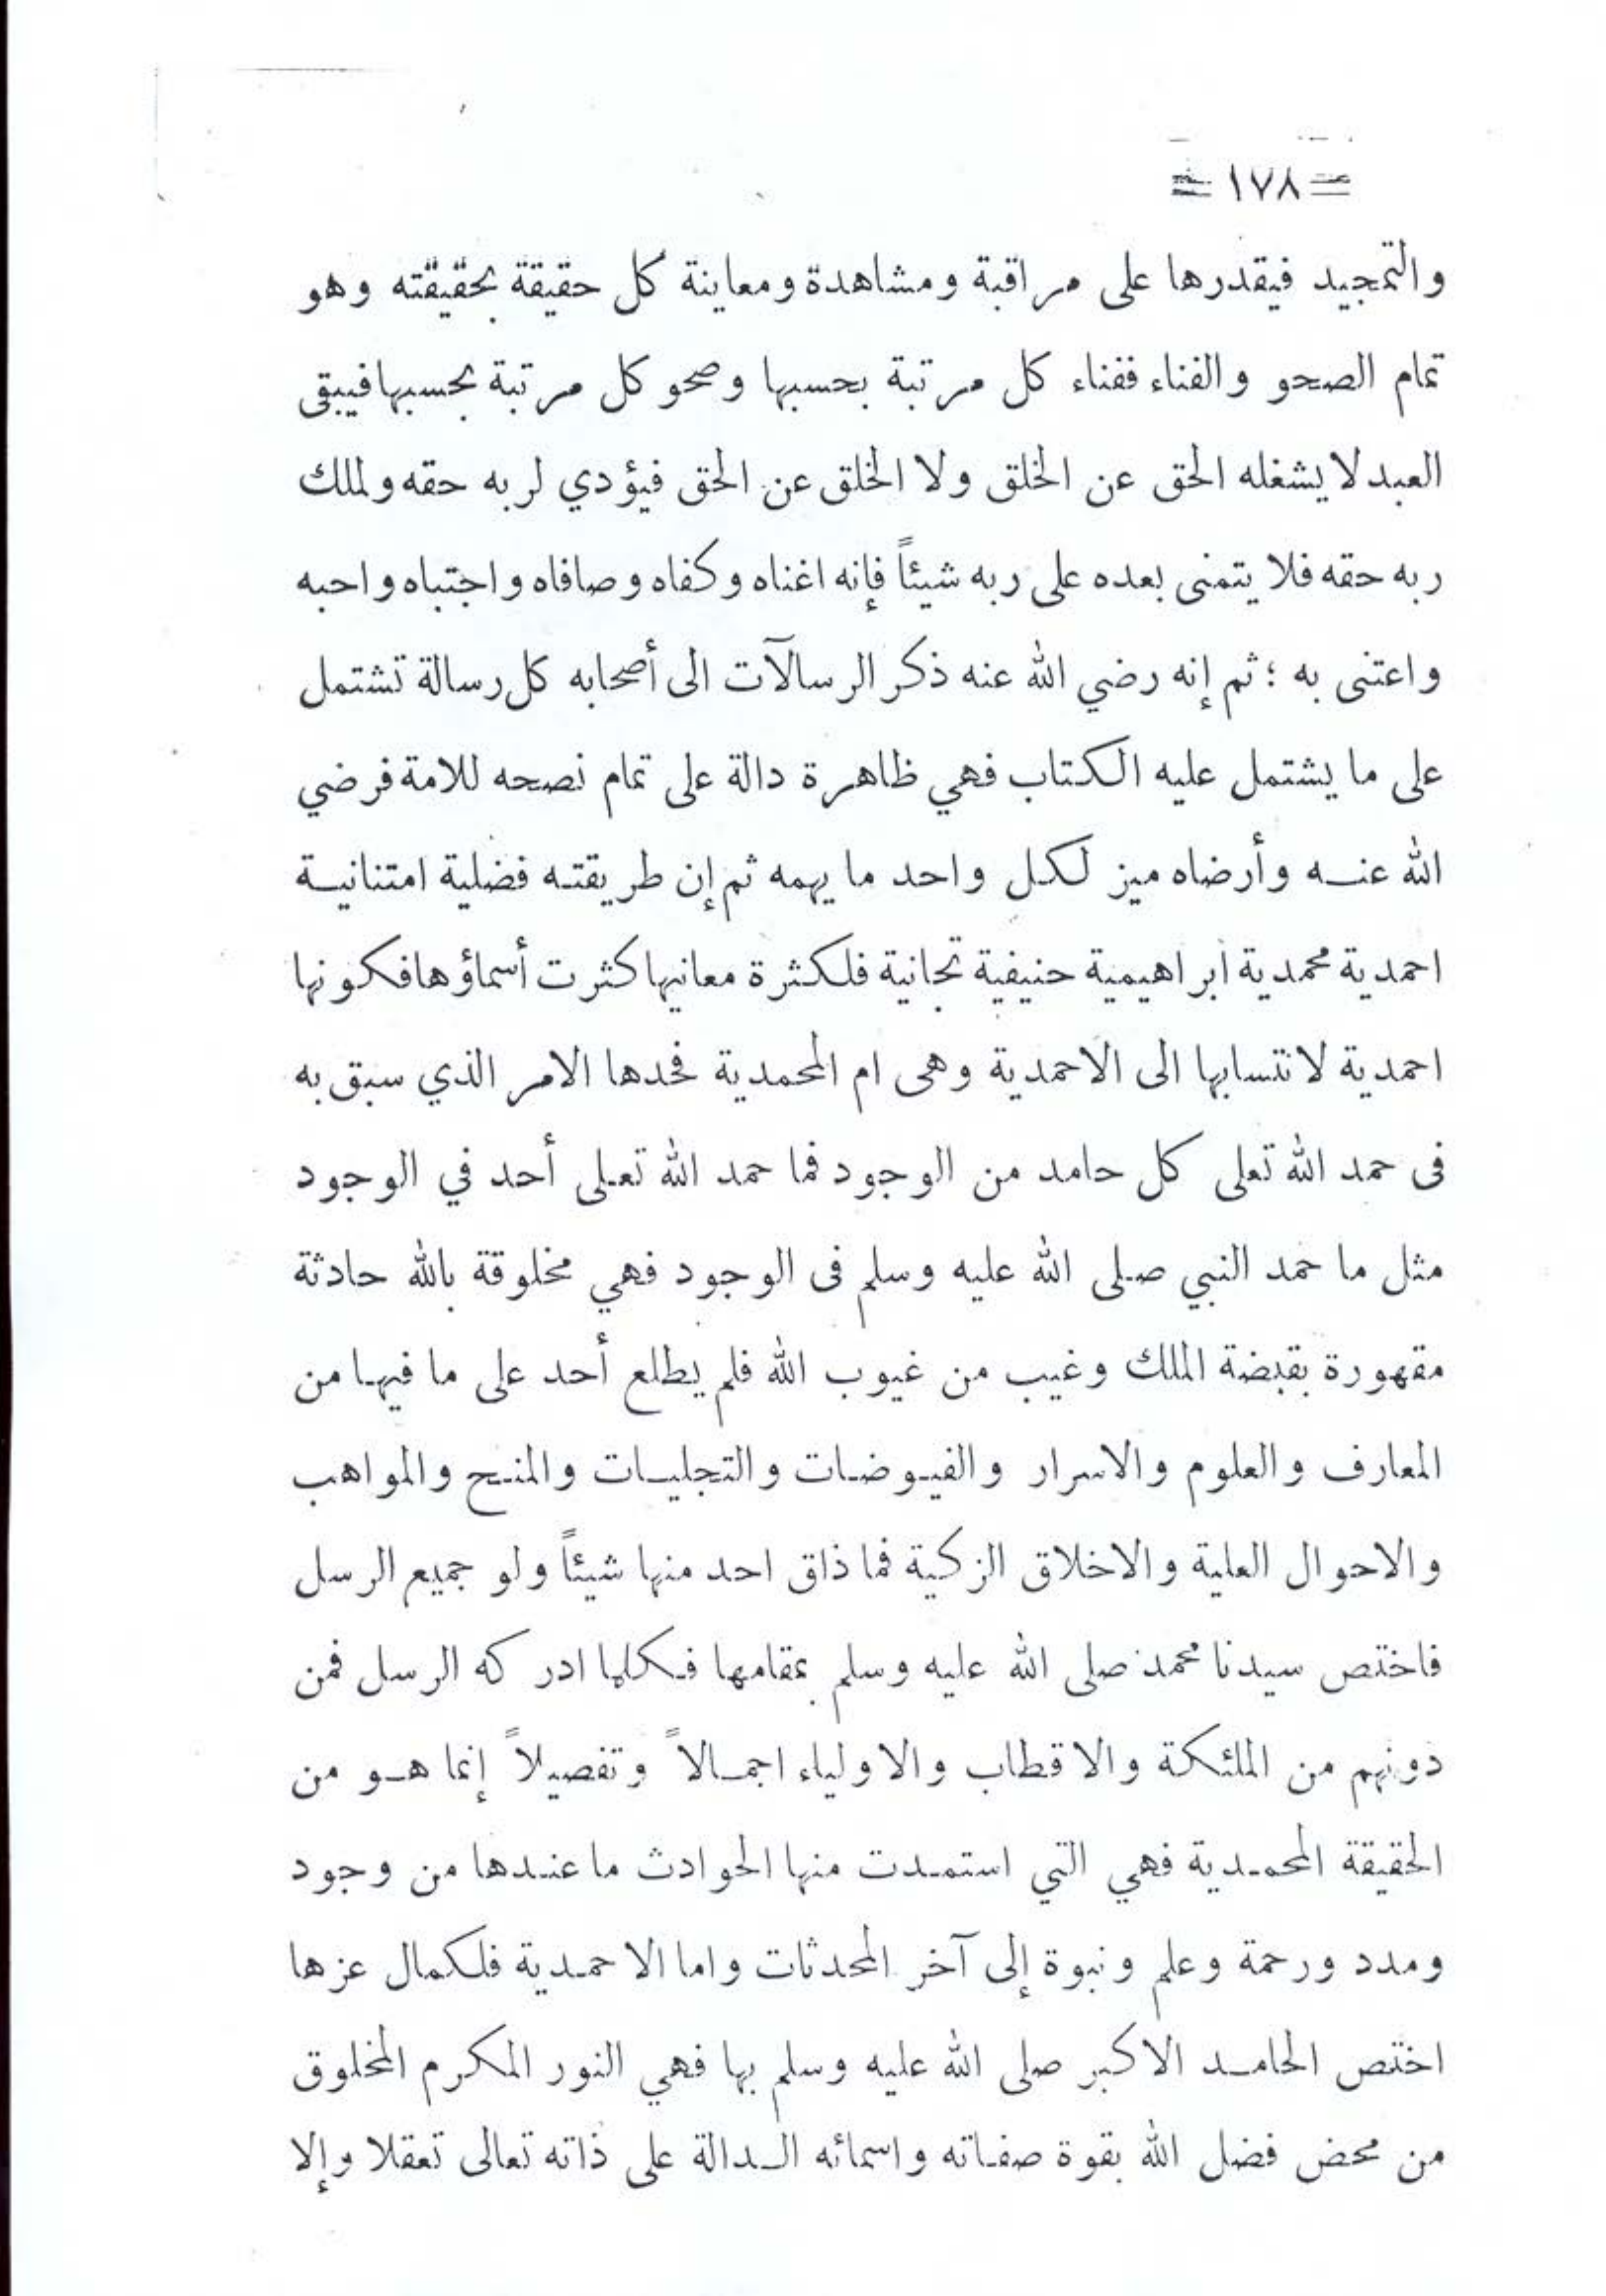 = ١٧٨ =
والتمجيد فيقدرها على مراقبة ومشاهدة ومعاينة كل حقيقة بحقيقته وهو
تمام الصحو والفناء ففناء كل مرتبة بحسبها وصحو كل مرتبة بحسبها فيبقى
العبد لا يشغله الحق عن الخلق ولا الخلق عن الحق فيؤدي لربه حقه ولملك
ربه حقه فلا يتمنى بعده على ربه شيئاً فإنه اغناه وكفاه وصافاه واجتباه واحبه
واعتنى به ؛ ثم إنه رضي الله عنه ذكر الرسالآت الى أصحابه كل رسالة تشتمل
على ما يشتمل عليه الكتاب فهي ظاهرة دالة على تمام نصحه للامة فرضي
الله عنه وأرضاه ميز لكل واحد ما يهمه ثم إن طريقته فضلية امتنانية
احمدية محمدية ابراهيمية حنيفية تجانية فلكثرة معانيها كثرت أسماؤها فكونها
احمدية لانتسابها الى الاحمدية وهى ام المحمدية فحدها الامر الذي سبق به
فى حمد الله تعلى كل حامد من الوجود فما حمد الله تعلى أحد في الوجود
مثل ما حمد النبي صلى الله عليه وسلم فى الوجود فهي مخلوقة بالله حادثة
مقهورة بقبضة الملك وغيب من غيوب الله فلم يطلع أحد على ما فيها من
المعارف والعلوم والاسرار والفيوضات والتجليات والمنح والمواهب
والاحوال العلية والاخلاق الزكية فما ذاق احد منها شيئاً ولو جميع الرسل
فاختص سيدنا محمد صلى الله عليه وسلم بمقامها فكلما ادركه الرسل فمن
دونهم من الملئكة والاقطاب والاولياء اجمالاً وتفصيلاً إنما هو من
الحقيقة المحمدية فهي التي استمدت منها الحوادث ما عندها من وجود
ومدد ورحمة وعلم ونبوة إلى آخر المحدثات واما الاحمدية فلكمال عزها
اختص الحامد الاكبر صلى الله عليه وسلم بها فهي النور المكرم المخلوق
من محض فضل الله بقوة صفاته واسمائه الدالة على ذاته تعالى تعقلا وإلا